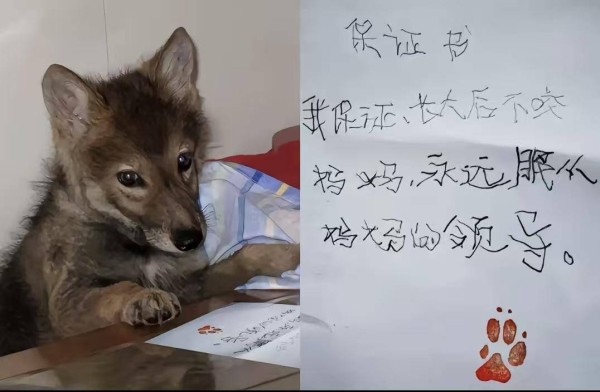 保证书
我保证、长大后不咬
妈妈,永远服从
妈妈的领导。